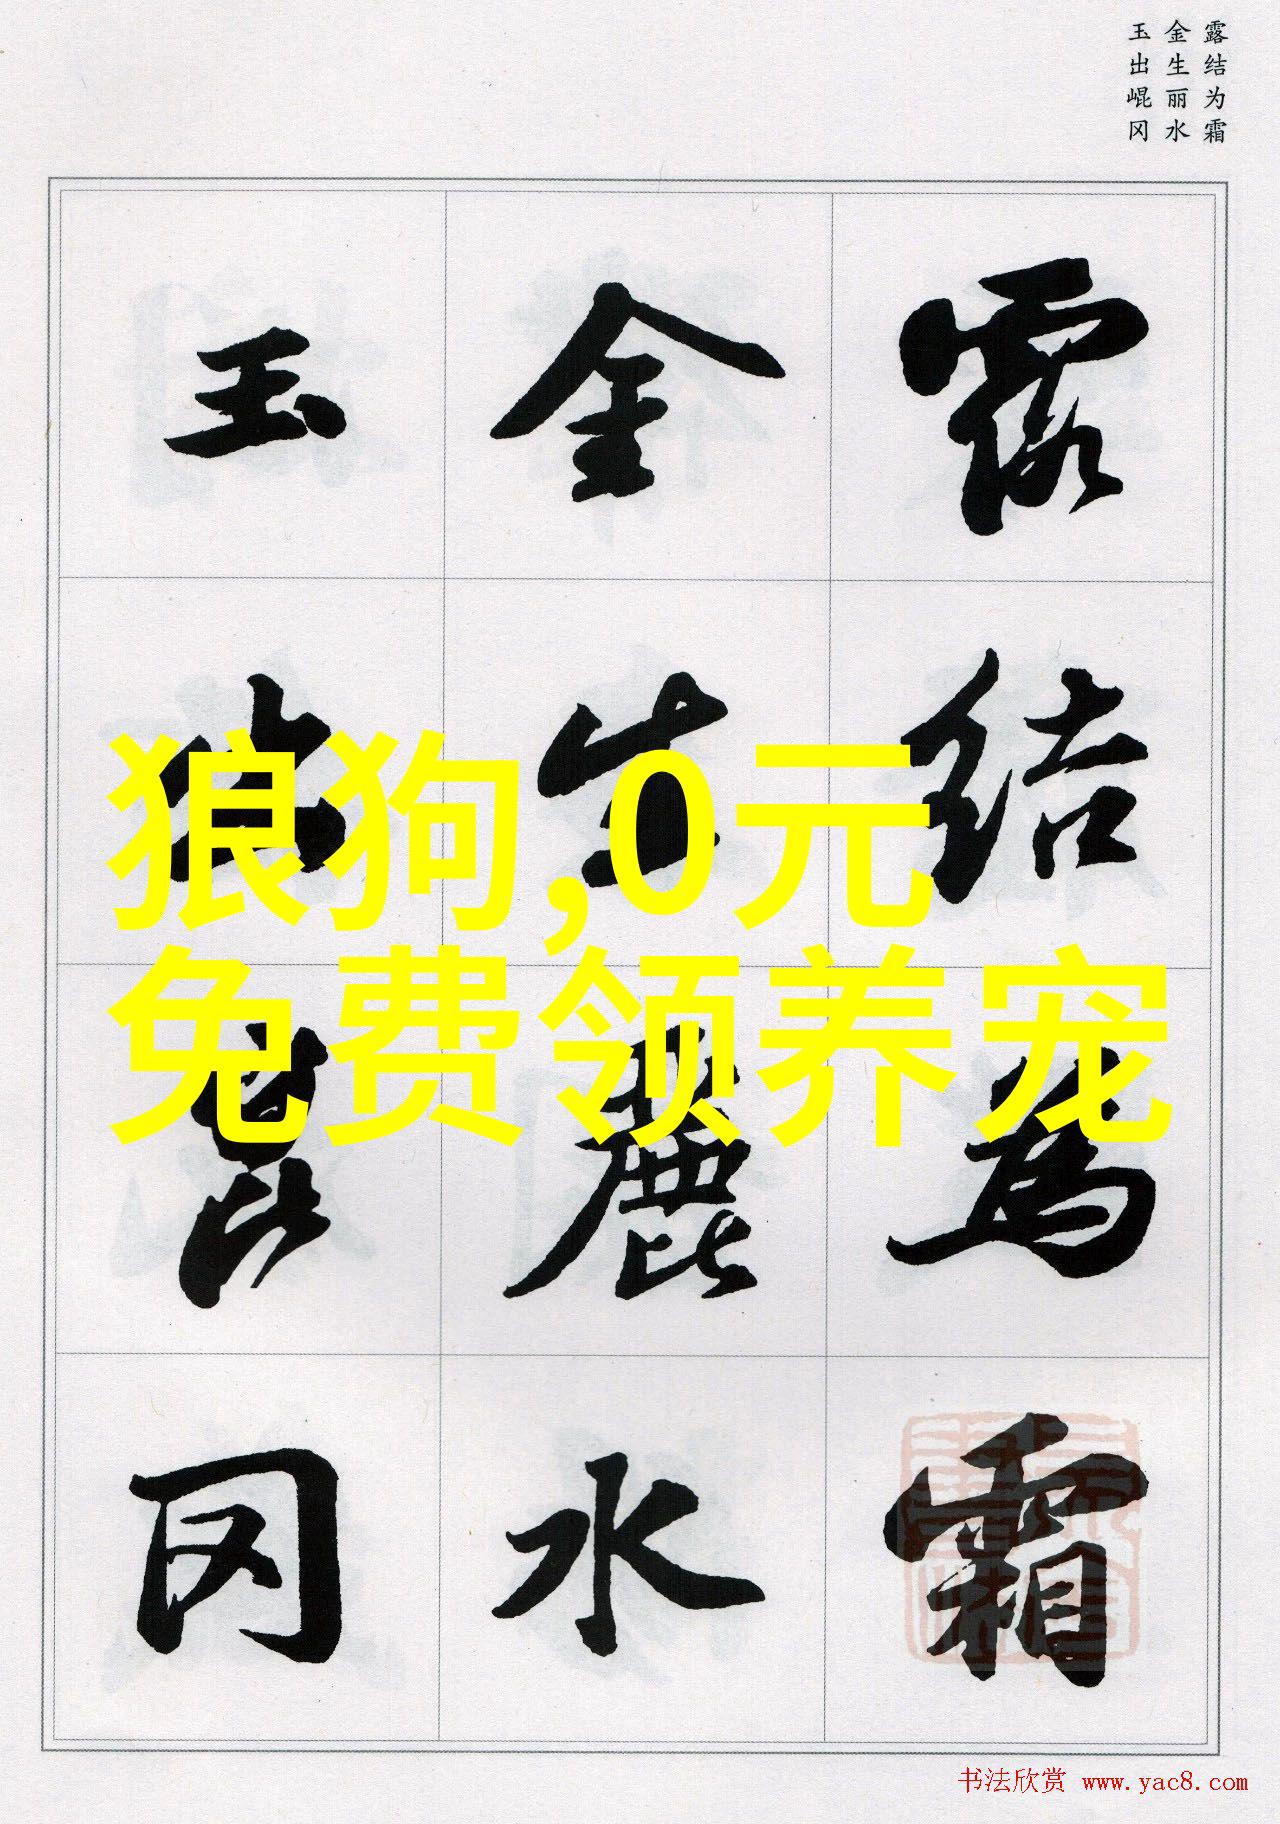 露结为霜
金生丽水
玉出崐冈
露结為霜
金生麗水
玉出昆冈
狼狗,0元
免费领养宠
书法欣赏 www.yac8.com